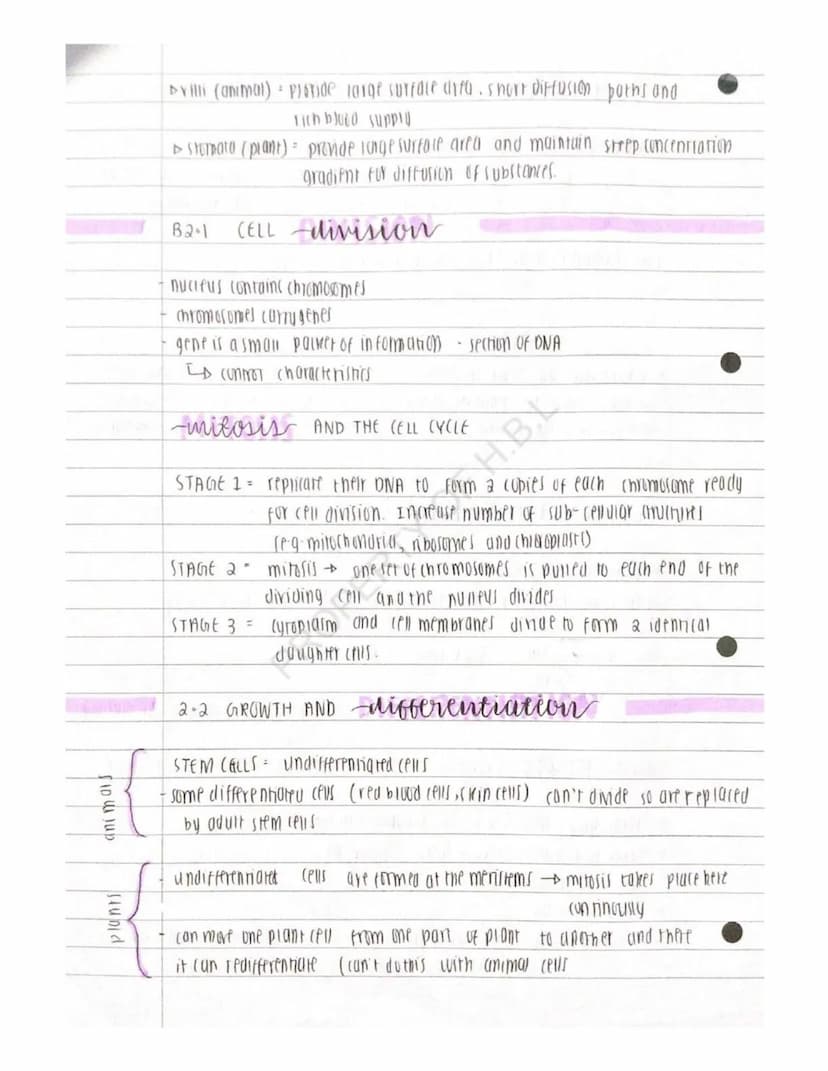 ▷ villi (animal) = provide large surface area, short diffusion paths and
rich blood supply
▷ stomata (plant) = provide large surface area and maintain steep concentration
gradient for diffusion of substances.
B2.1 CELL division
DIVISION
- nucleus contains chromosomes
- chromosomes carry genes
- gene is a small packet of information - section of DNA
↳ control characteristics
mitosis AND THE CELL CYCLE
MITOSIS
STAGE 1 = replicate their DNA to form 2 copies of each chromosome ready
for cell division. Increase number of sub-cellular structures
(e.g. mitochondria, ribosomes and chloroplasts)
STAGE 2 = mitosis → one set of chromosomes is pulled to each end of the
dividing cell and the nucleus divides
STAGE 3 = cytoplasm and cell membranes divide to form 2 identical
daughter cells.
PROPERTY OF H.B.L
2.2 GROWTH AND differentiation
DIFFERENTIATION
animals
STEM CELLS = undifferentiated cells
- some differentiated cells (red blood cells, skin cells) can't divide so are replaced
by adult stem cells
plants
- undifferentiated cells are formed at the meristems → mitosis takes place here
continously
- can move one plant cell from one part of plant to another and there
it can redifferentiate (can't do this with animal cells